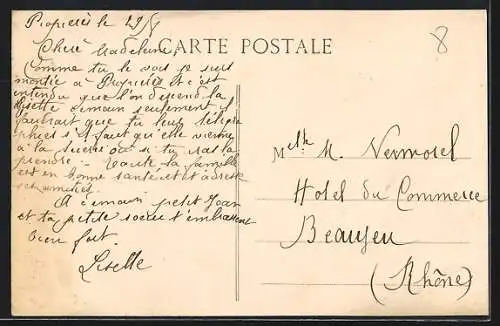 Propières le 29/5
8
Chère Madeleine,
CARTE POSTALE
Comme tu le vois je suis
montée à Propières et c'est
entendu que l'on descend la
Lisette demain seulement il
faudrait que tu leur télégra
phies s'il faut qu'elle vienne
à la ou si tu vas la
prendre - Toute la famille
est en bonne santé et t'adresse
ses amitiés.
A demain petit Jean
et ta petite soeur t'embrassent
bien fort.
Lisette
Melle M. Vermorel
Hotel du Commerce
Beaujeu
(Rhône)